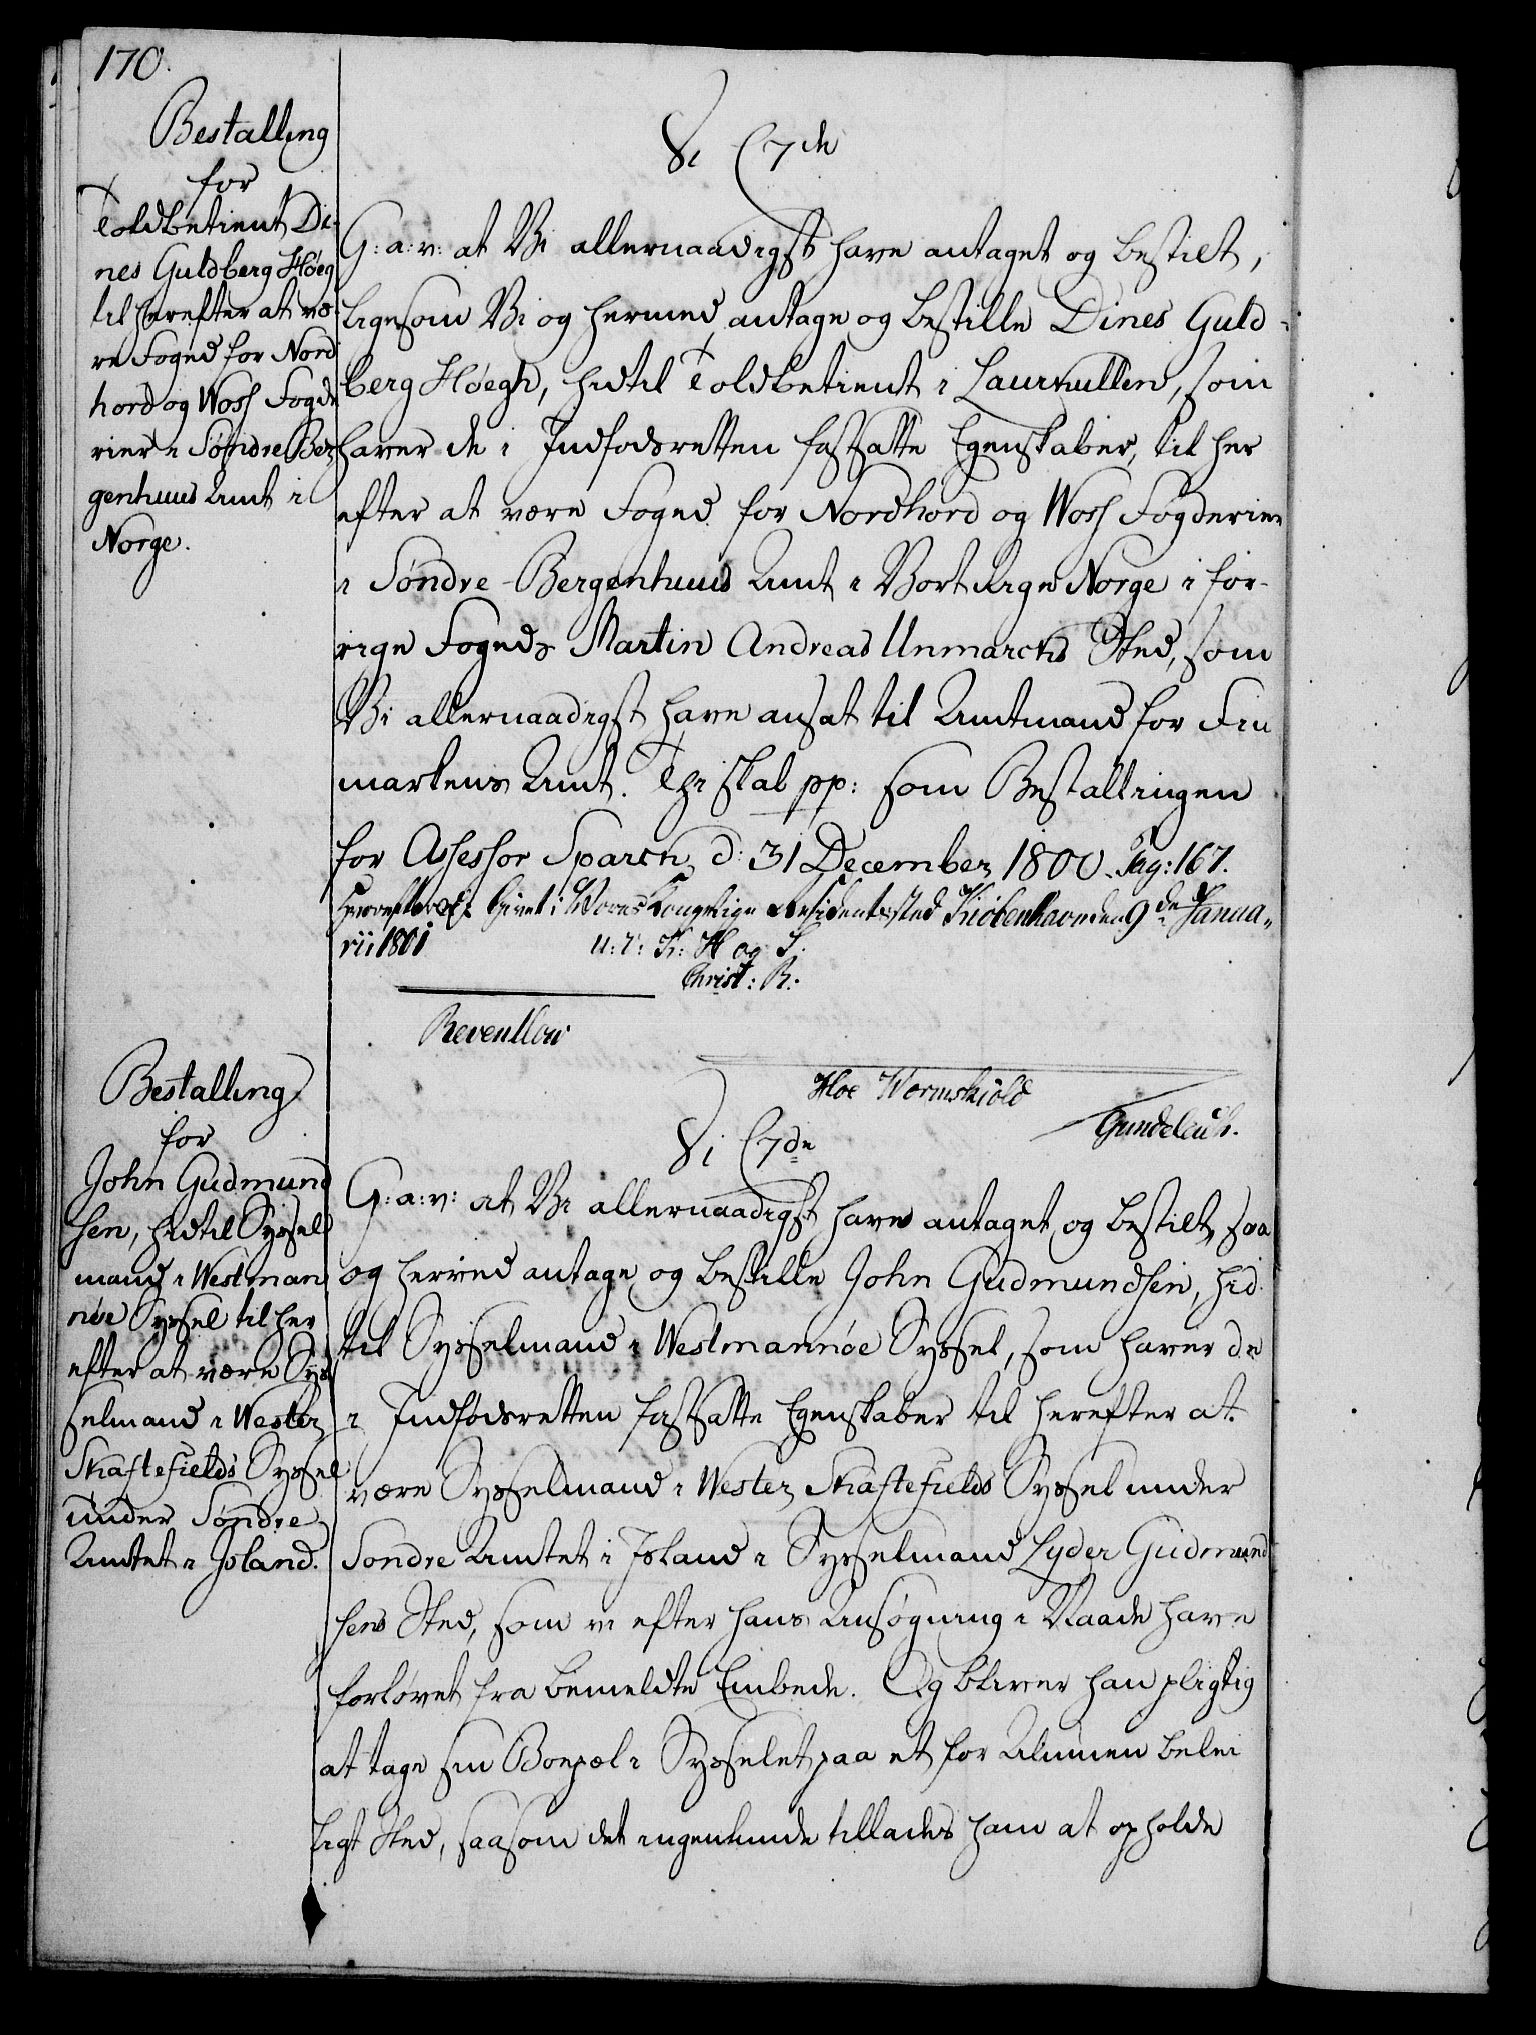 170.
Bestalling
for
Toldbetient Di-
nes Guldberg Höeg
til herefter at væ-
re Foged for Nord
hord og Woss Fogde
rier i Söndre Ber
genhuus Amt i
Norge.
Vi C 7de
G: a: v: at Vi allernaadigst have antaget og bestilt,
ligesom Vi og hermed antage og bestille Dines Guld-
berg Höegh, hidtil Toldbetient i Laurkullen, som
haver de i Indfødsretten fastsatte Egenskaber, til her
efter at være Foged for Nordhord og Woss Fogderier
i Söndre-Bergenhuus Amt i Vort Rige Norge i for-
rige Fogeds Martin Andreas Unmarcks Sted, som
Vi allernaadigst have ansat til Amtmand for Fin
markens Amt. Thi skal pp: som Bestallingen
for Assessor Sparck d: 31 December 1800. Pag: 167.
Givet i Vores Kongelige Residentzsted Kiöbenhavn den 9de Janua„
rii 1801 U: T: K: H og S.
Christ: R:
Reventlow
Hoe Wormskiold
Gundelach.
Bestalling
for
John Gudmund
sen, hidtil Syssel
mand i Westman
nöe Syssel til her
efter at være Sys
selmand i Wester
Skaftefields Syssel
under Söndre
Amtet i Island.
Vi C 7de
G: a: v: at Vi allernaadigst have antaget og bestilt, saa
og herved antage og bestille John Gudmundsen, hid-
til Sysselmand i Westmannöe Syssel, som haver de
i Indfødsretten fastsatte Egenskaber til herefter at
være Sysselmand i Wester Skaftefields Syssel under
Söndre Amtet i Island i Sysselmand Lyder Gudmund
sens Sted, som vi efter hans Ansøgning i Naade have
forlövet fra bemeldte Embede. Og bliver han pligtig
at tage sin Boepæl i Sysselet paa et for Almuen belei
ligt Sted, saasom det ingenlunde tillades ham at opholde